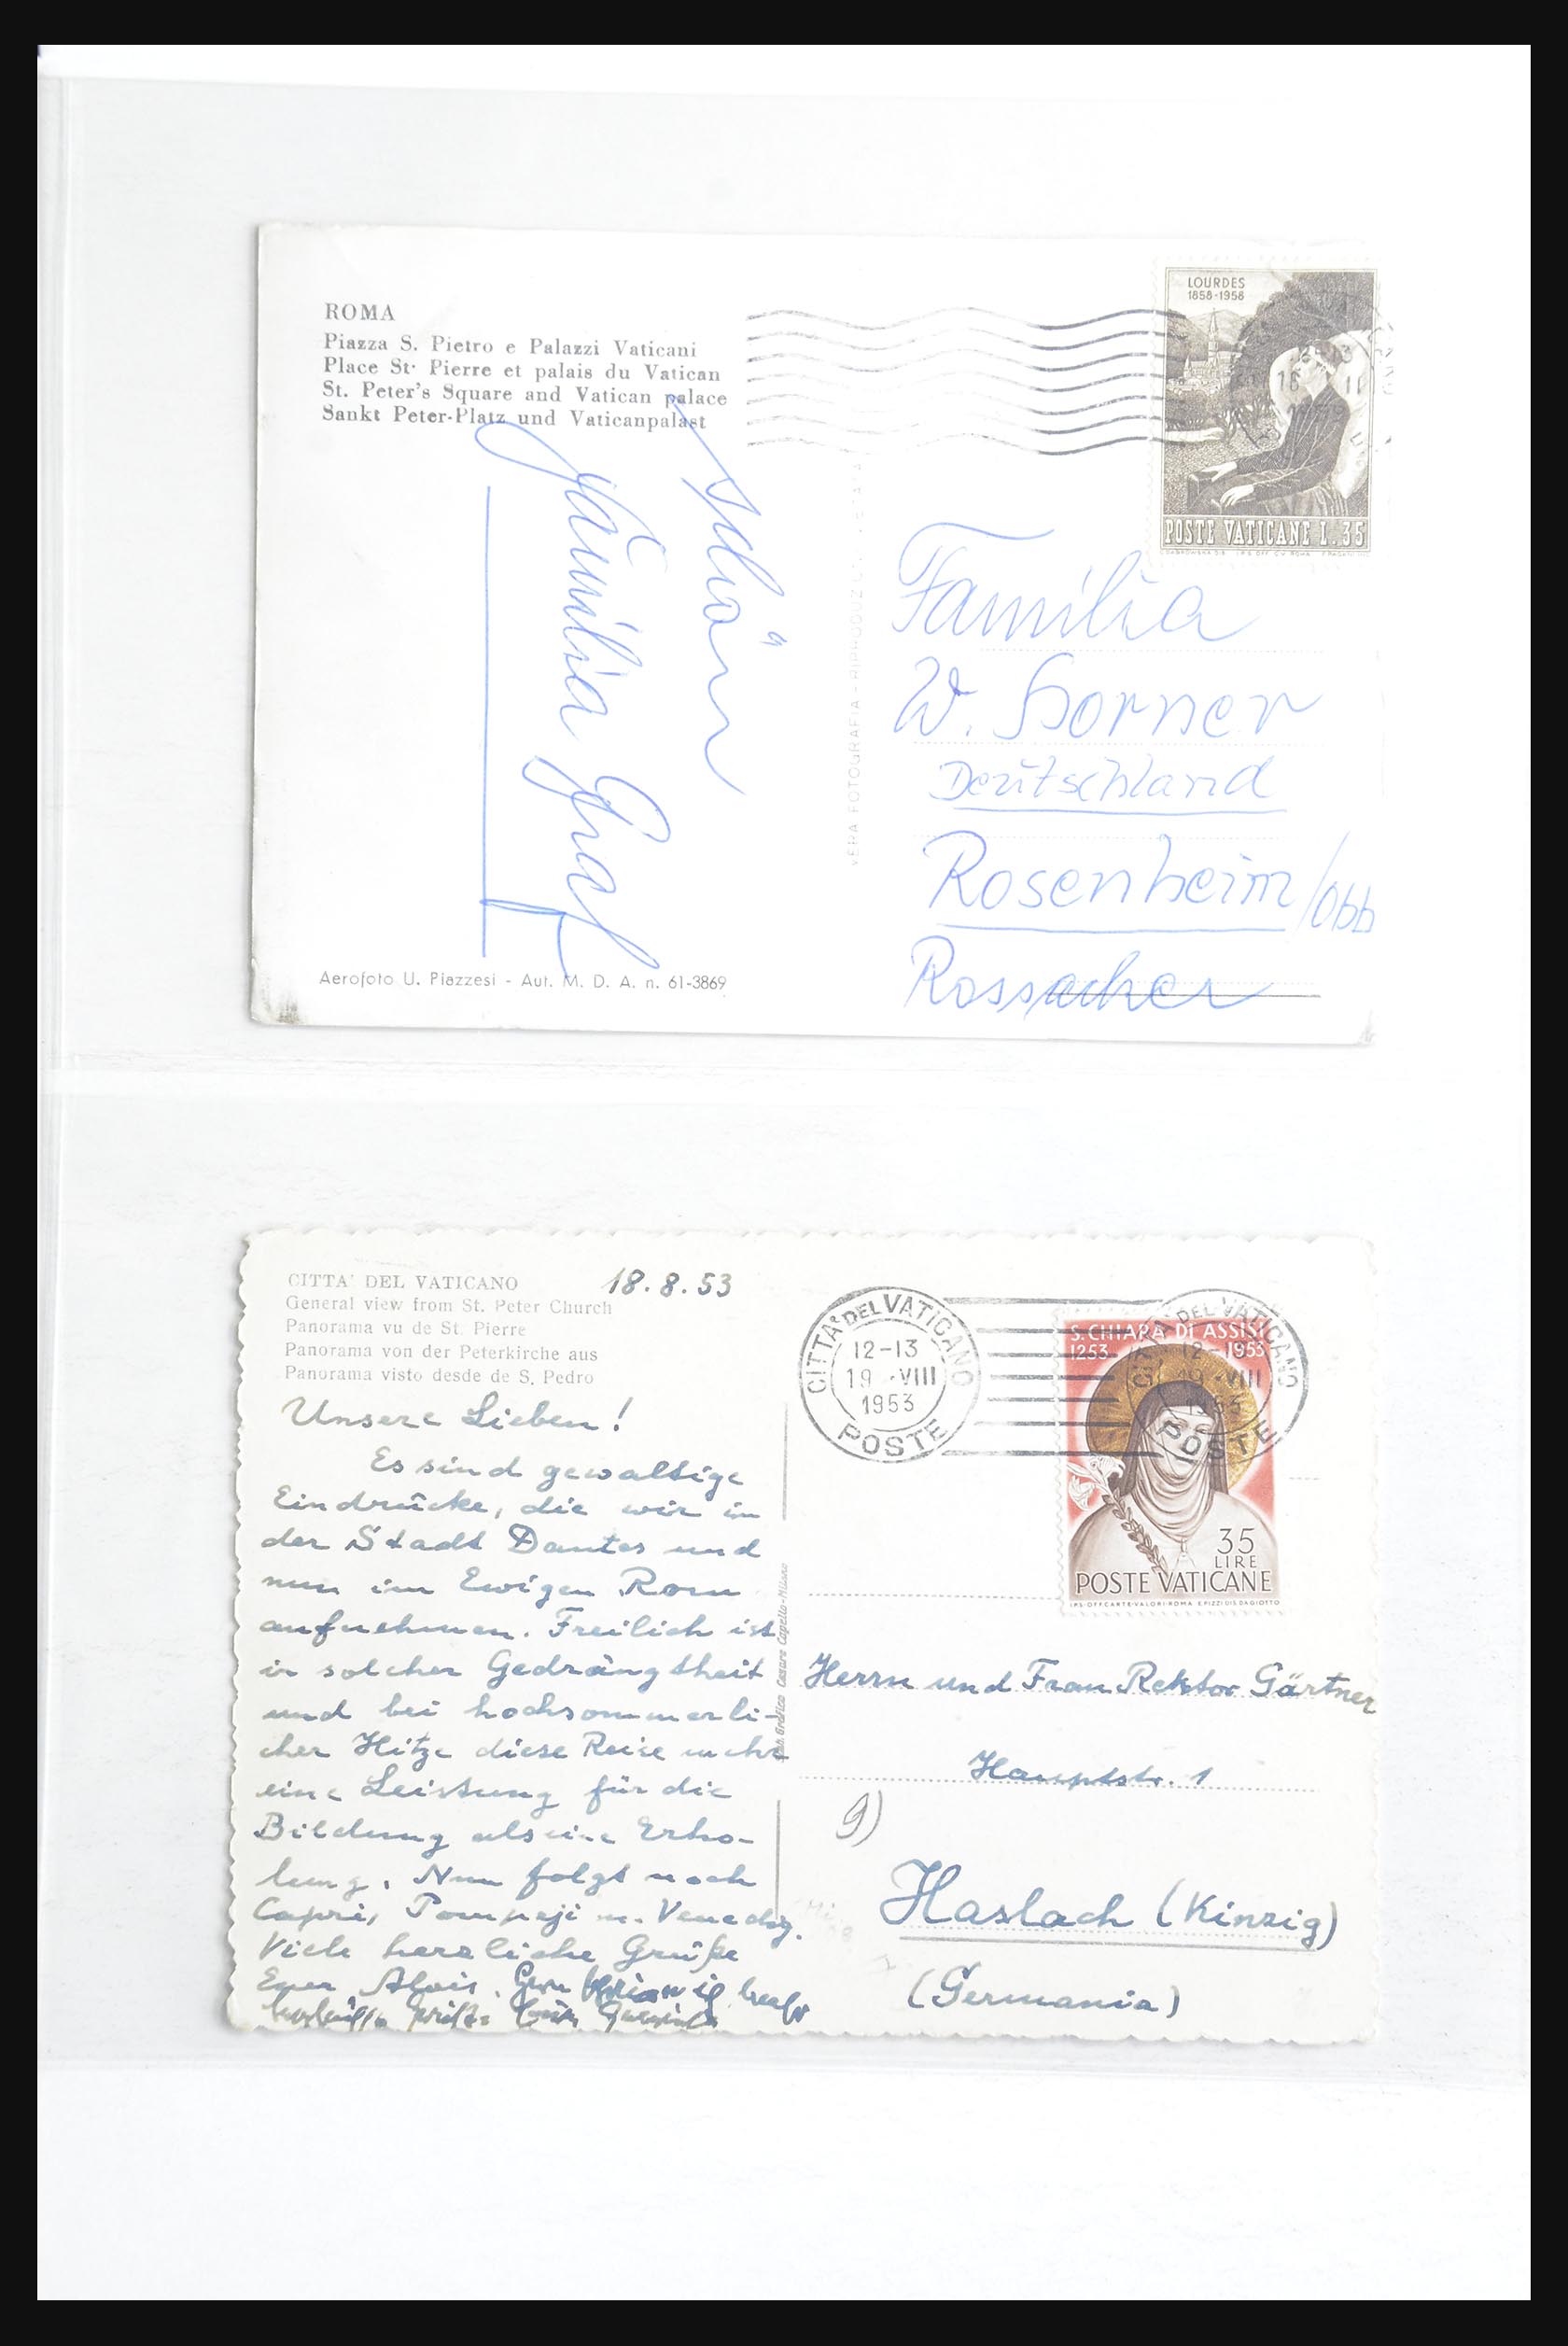 ROMA
Piazza S. Pietro e Palazzi Vaticani
Place St. Pierre et palais du Vatican
St. Peter's Square and Vatican palace
Sankt Peter-Platz und Vaticanpalast
LOURDES
1858-1958
POSTE VATICANE L. 35
Familia Graf
VERA FOTOGRAFIA - RIPRODUZ
Familia
W. Horner
Deutschland
Rosenheim/Obb
Aerofoto U. Piazzesi - Aut. M. D. A. n. 61-3869
CITTA' DEL VATICANO
General view from St. Peter Church
Panorama vu de St. Pierre
Panorama von der Peterkirche aus
Panorama visto desde de S. Pedro
18.8.53
CITTA' DEL VATICANO
12-13
19.-VIII
1953
POSTE
CITTA' DEL VATICANO
12-
19.-VIII
1953
POSTE
S. CHIARA DI ASSISI
1253 - 1953
35
LIRE
POSTE VATICANE
I.P.S.-OFF.CARTE-VALORI-ROMA
Unsere Lieben!
Es sind gewaltige
Eindrücke, die wir in
der Stadt Dantes und
nun im Ewigen Rom
aufnehmen. Freilich ist
in solcher Gedrängtheit
und bei hochsommerli-
cher Hitze diese Reise mehr
eine Leistung für die
Bildung als eine Erho-
lung. Nun folgt noch
Capri, Pompeji u. Venedig.
Viele herzliche Grüße
Euer Alois.
Grafico Cesare Capello-Milano
Herrn und Frau Rektor Gärtner
Hauptstr. 1
g)
Haslach (Kinzig)
(Germania)